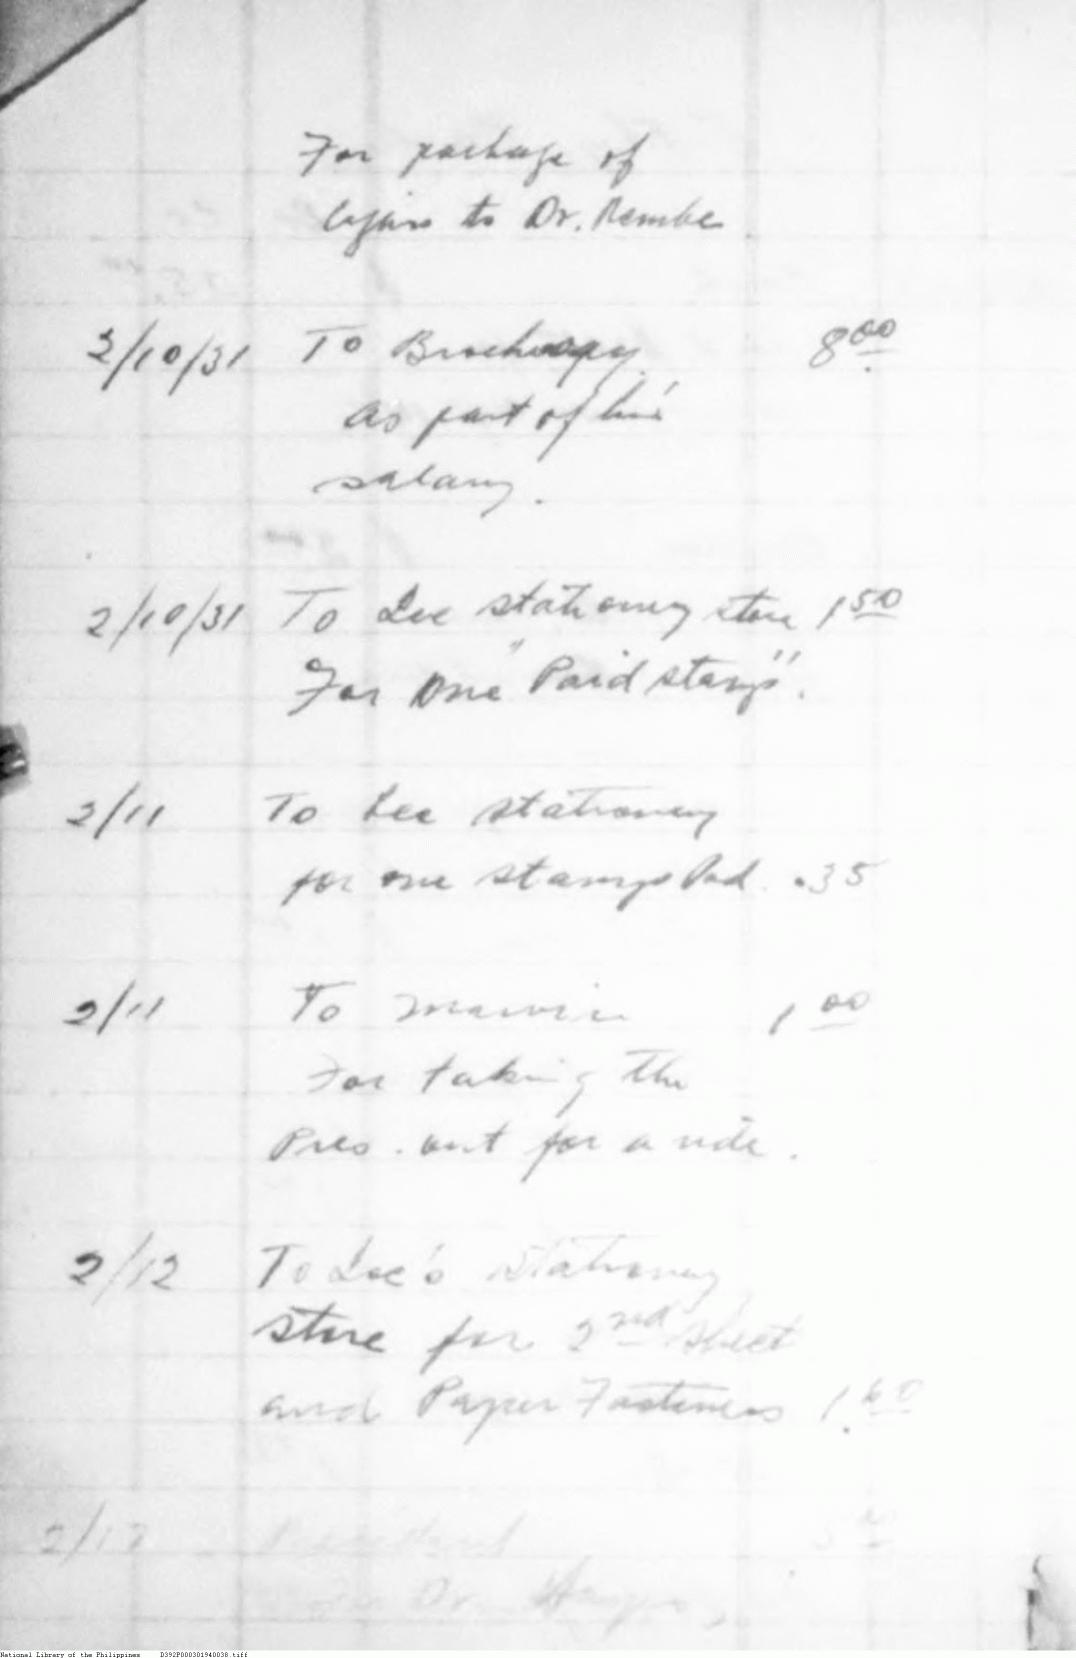 For package of
to Dr. Rembe
2/10/31 To 8 00
as part of his
salary.
2/10/31 To Lee stationery store 1 50
For One "Paid stamp".
2/11 To Lee stationery
for one stamp Pad. .35
2/11 To Marvin 1 00
For taking the
Pres. out for a ride.
2/12 To Lee's stationery
store for 2nd sheet
and Paper Fasteners 1.60
2/17
For Dr.
National Library of the Philippines D392P000301940038.tiff